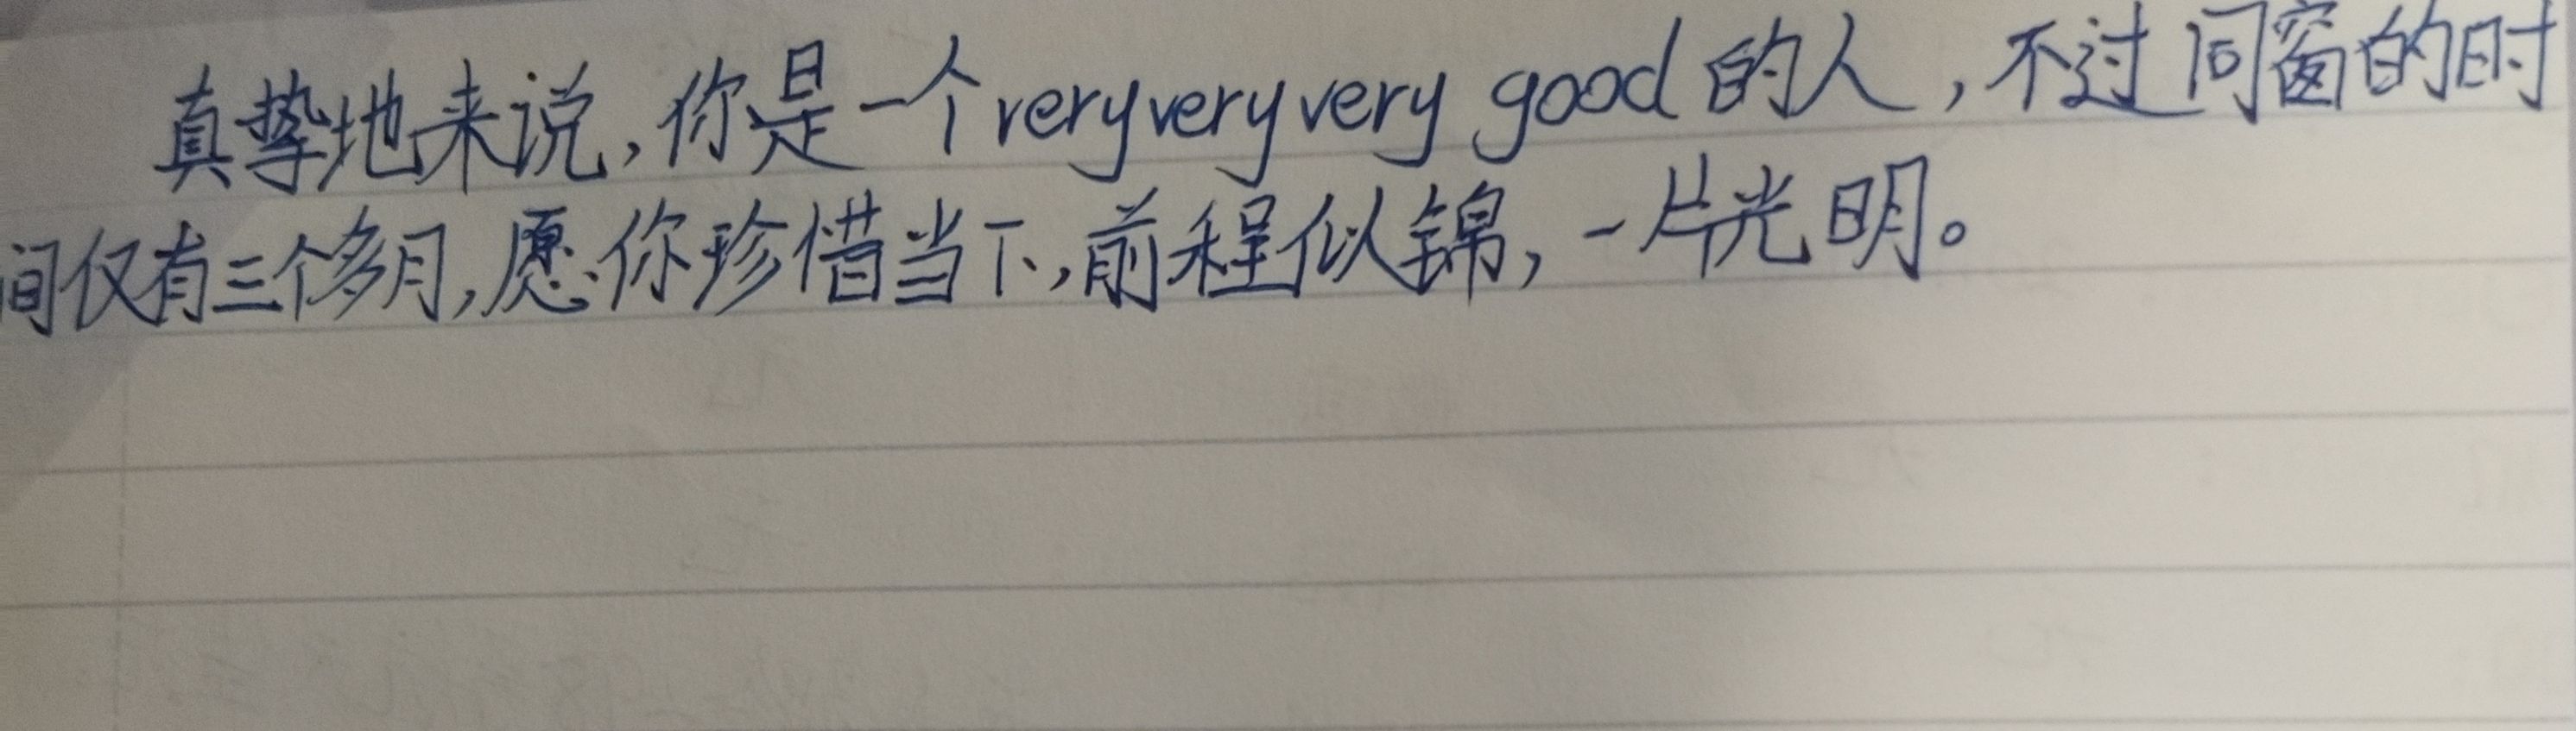 真挚地来说，你是一个veryveryvery good的人，不过同窗的时
间仅有三个多月，愿你珍惜当下，前程似锦，一片光明。